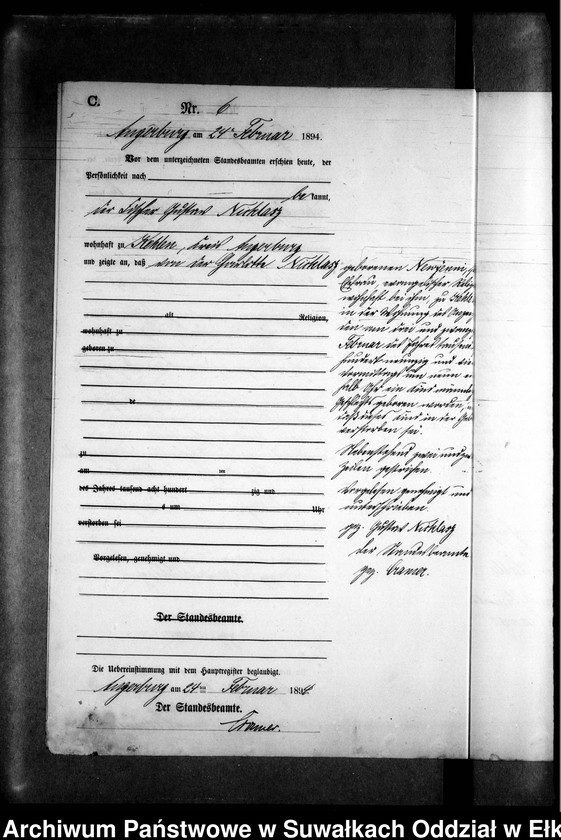 C.
Nr. 6
Angerburg am 24ten Februar 1894.
Vor dem unterzeichneten Standesbeamten erschien heute, der
Persönlichkeit nach
bekannt,
der Fischer Gustav Nicklasz
wohnhaft zu Kehlen, Kreis Angerburg
und zeigte an, daß von der Charlotte Nicklasz
alt Religion,
wohnhaft zu
geboren zu
de
zu
am im
des Jahres tausend acht hundert zig und
s um Uhr
verstorben sei
Vorgelesen, genehmigt und
Der Standesbeamte.
Die Uebereinstimmung mit dem Hauptregister beglaubigt.
Angerburg am 24ten Februar 1894.
Der Standesbeamte.
Cramer.
geborenen
Ehefrau, evangelischer
wohnhaft bei ihm, zu
in der Wohnung des
ten am drei und
Februar des Jahres tausend
hundert neunzig und vier
Vormittags um neun
halb Uhr ein Kind männlichen
Geschlechts geboren worden,
und in der
verstorben sei.
Nebenstehend zwei und
Zeilen gestrichen.
Vorgelesen genehmigt und
unterschrieben
gez. Gustav Nicklasz
Der Standesbeamte
gez. Cramer.
Archiwum Państwowe w Suwałkach Oddział w Ełk